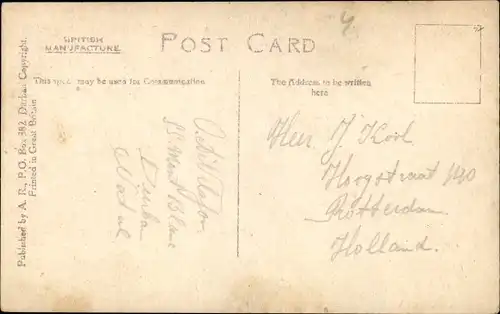 4
BRITISH
MANUFACTURE
POST CARD
This space may be used for Communication
The Address to be written
here
Published by A. R., P.O. Box 382, Durban Copyright.
Printed in Great Britain
SS. Mont Blanc
Durban
Natal
J. Kool
Hoogstraat 140
Rotterdam
Holland.